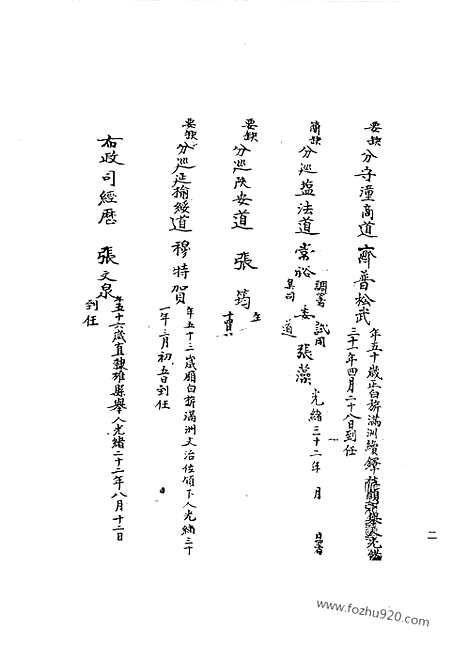 要缺 分守潼商道 齊普松武 年五十歲正白旂滿洲續鐸佐領
三十一年四月二十八日到任
簡缺 分巡盐法道 常裕 調署臬司 委試用道 張藻 光緒三十二年 月 日署
要缺 分巡陕安道 張筠
要缺 分巡延榆綏道 穆特賀 年五十三歲廂白旂滿洲文治佐領下人光緒三十
一年三月初五日到任
布政司經歷 張文泉 年五十六歲直隸雄縣舉人光緒二十二年八月十二日
到任
二
www.fozhu920.com